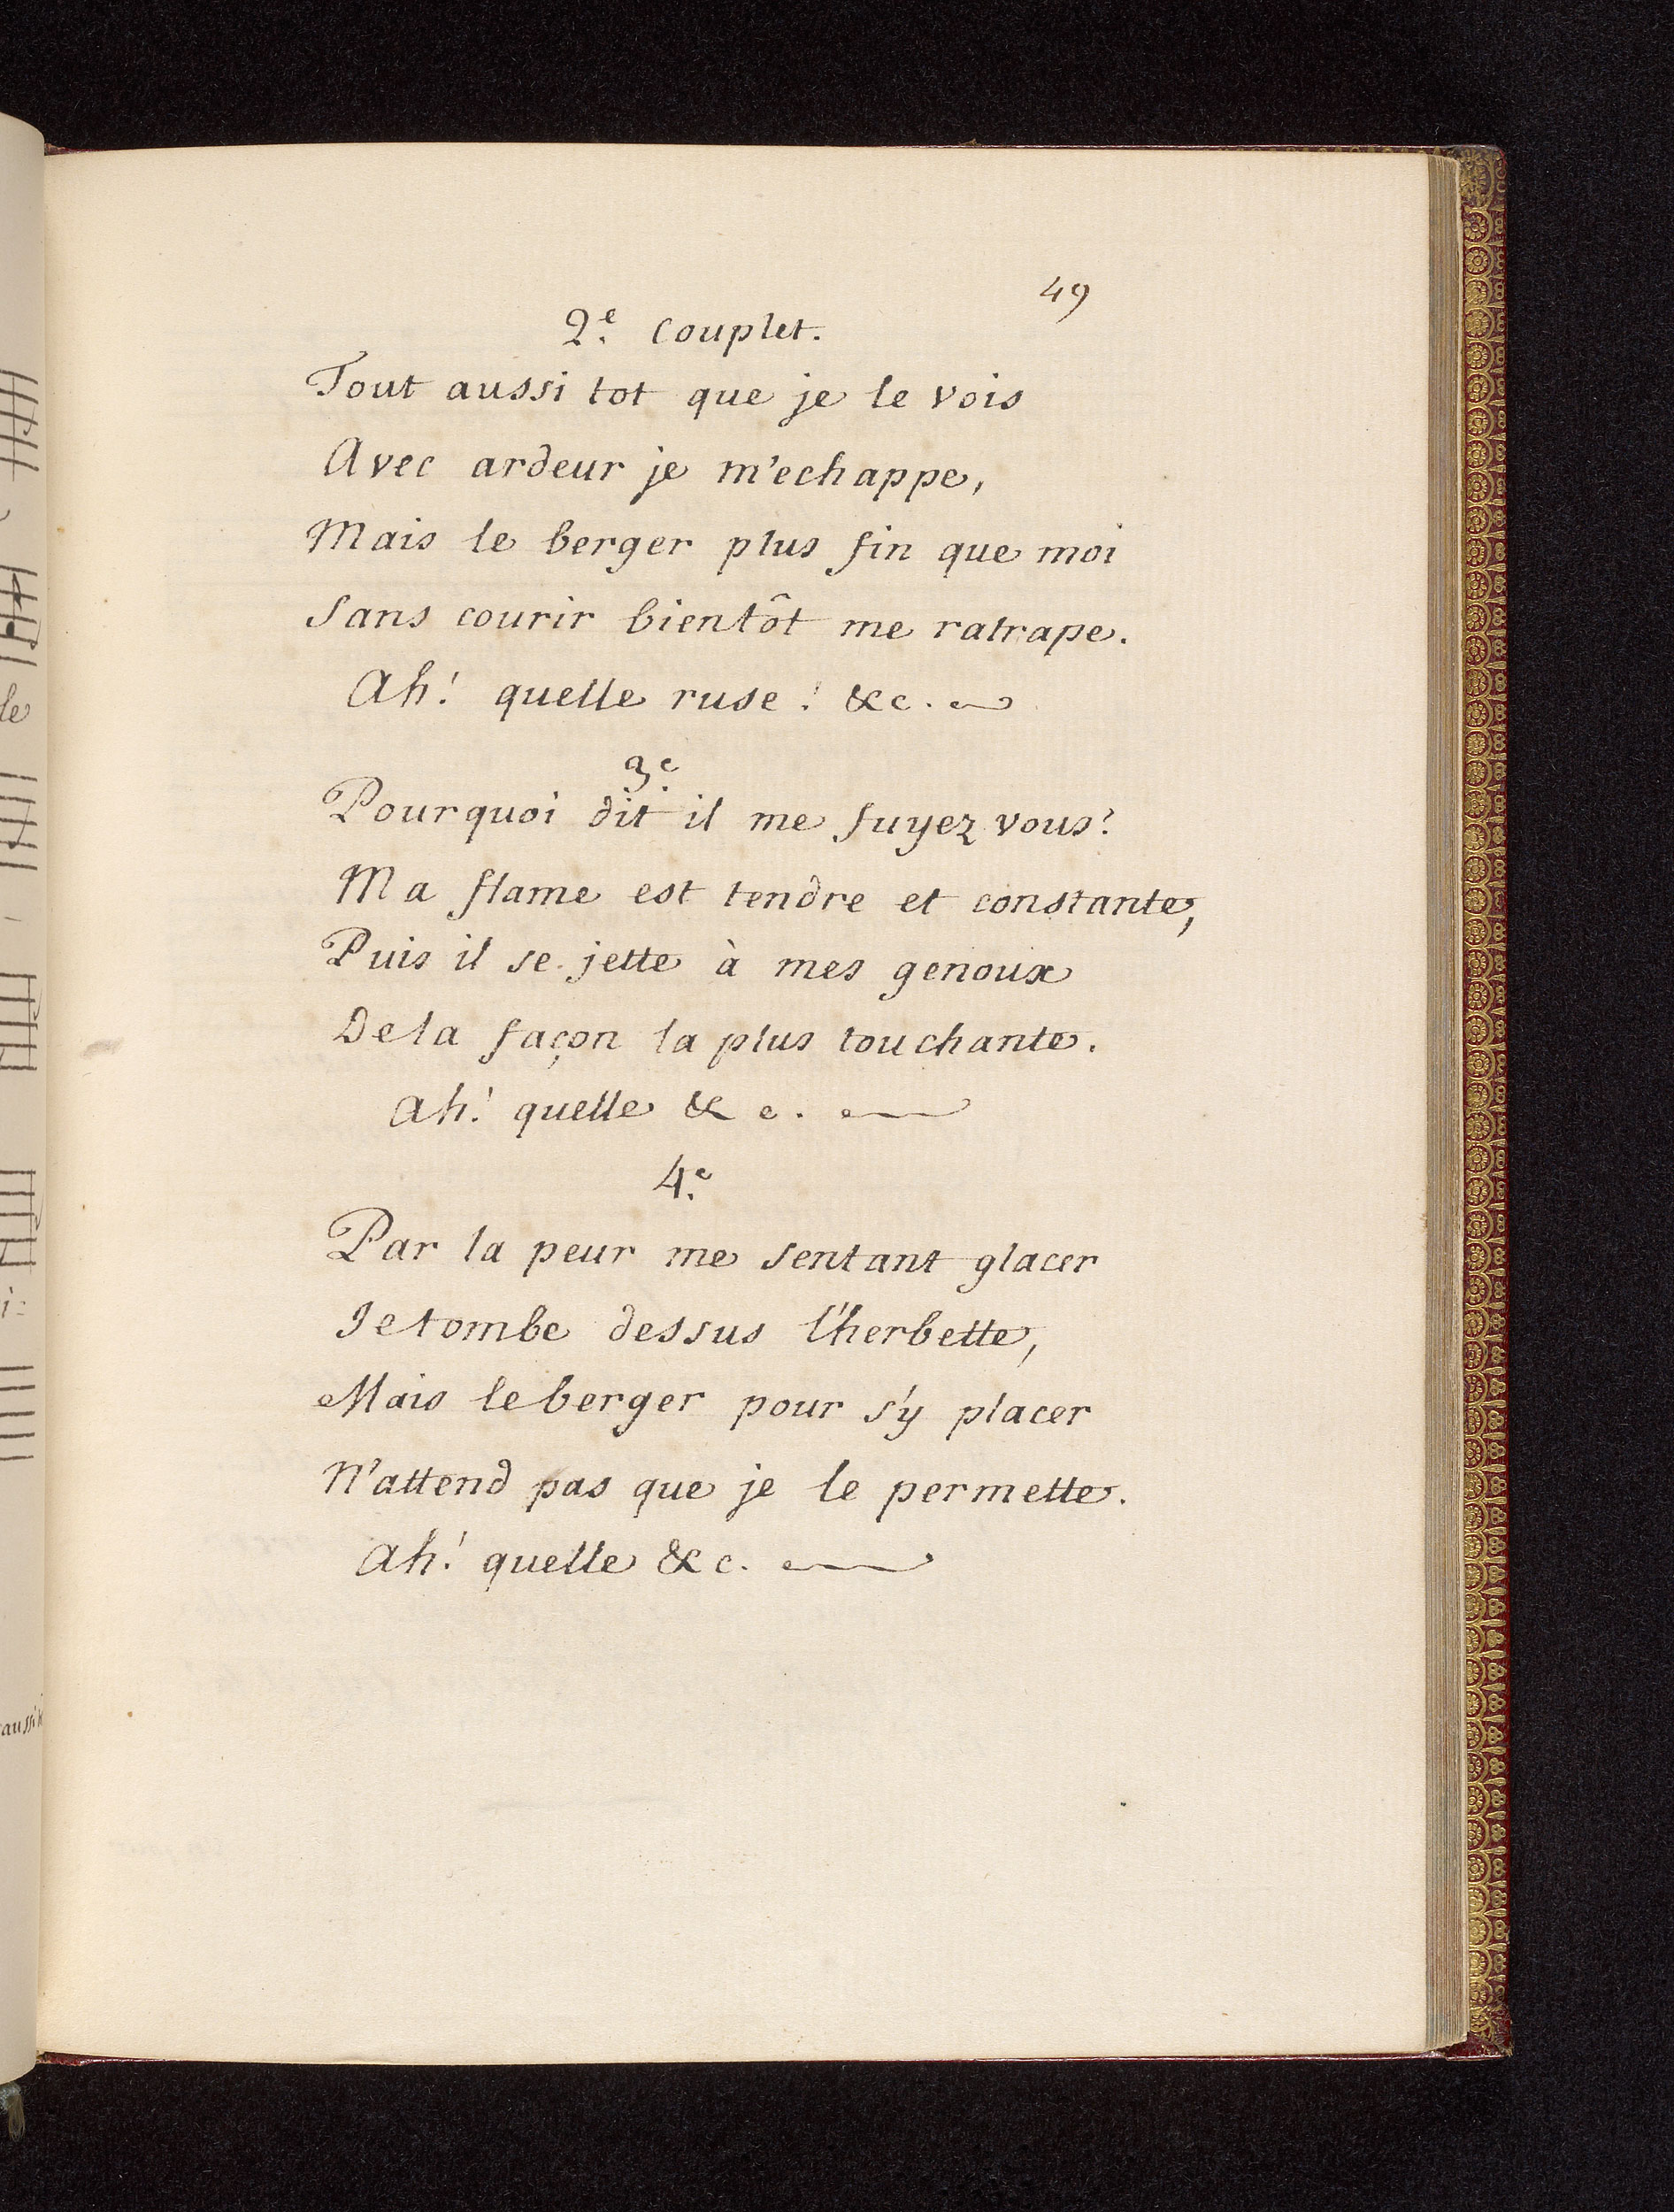 49
2e. Couplet.
Tout aussi tot que je le vois
Avec ardeur je m'echappe,
Mais le berger plus fin que moi
Sans courir bientôt me ratrape.
Ah! quelle ruse! &c.
3e.
Pourquoi dit il me fuyez vous?
Ma flame est tendre et constante,
Puis il se jette à mes genoux
De la façon la plus touchante.
Ah! quelle &c.
4e.
Par la peur me sentant glacer
Je tombe dessus l'herbette,
Mais le berger pour s'y placer
N'attend pas que je le permette.
Ah! quelle &c.
le